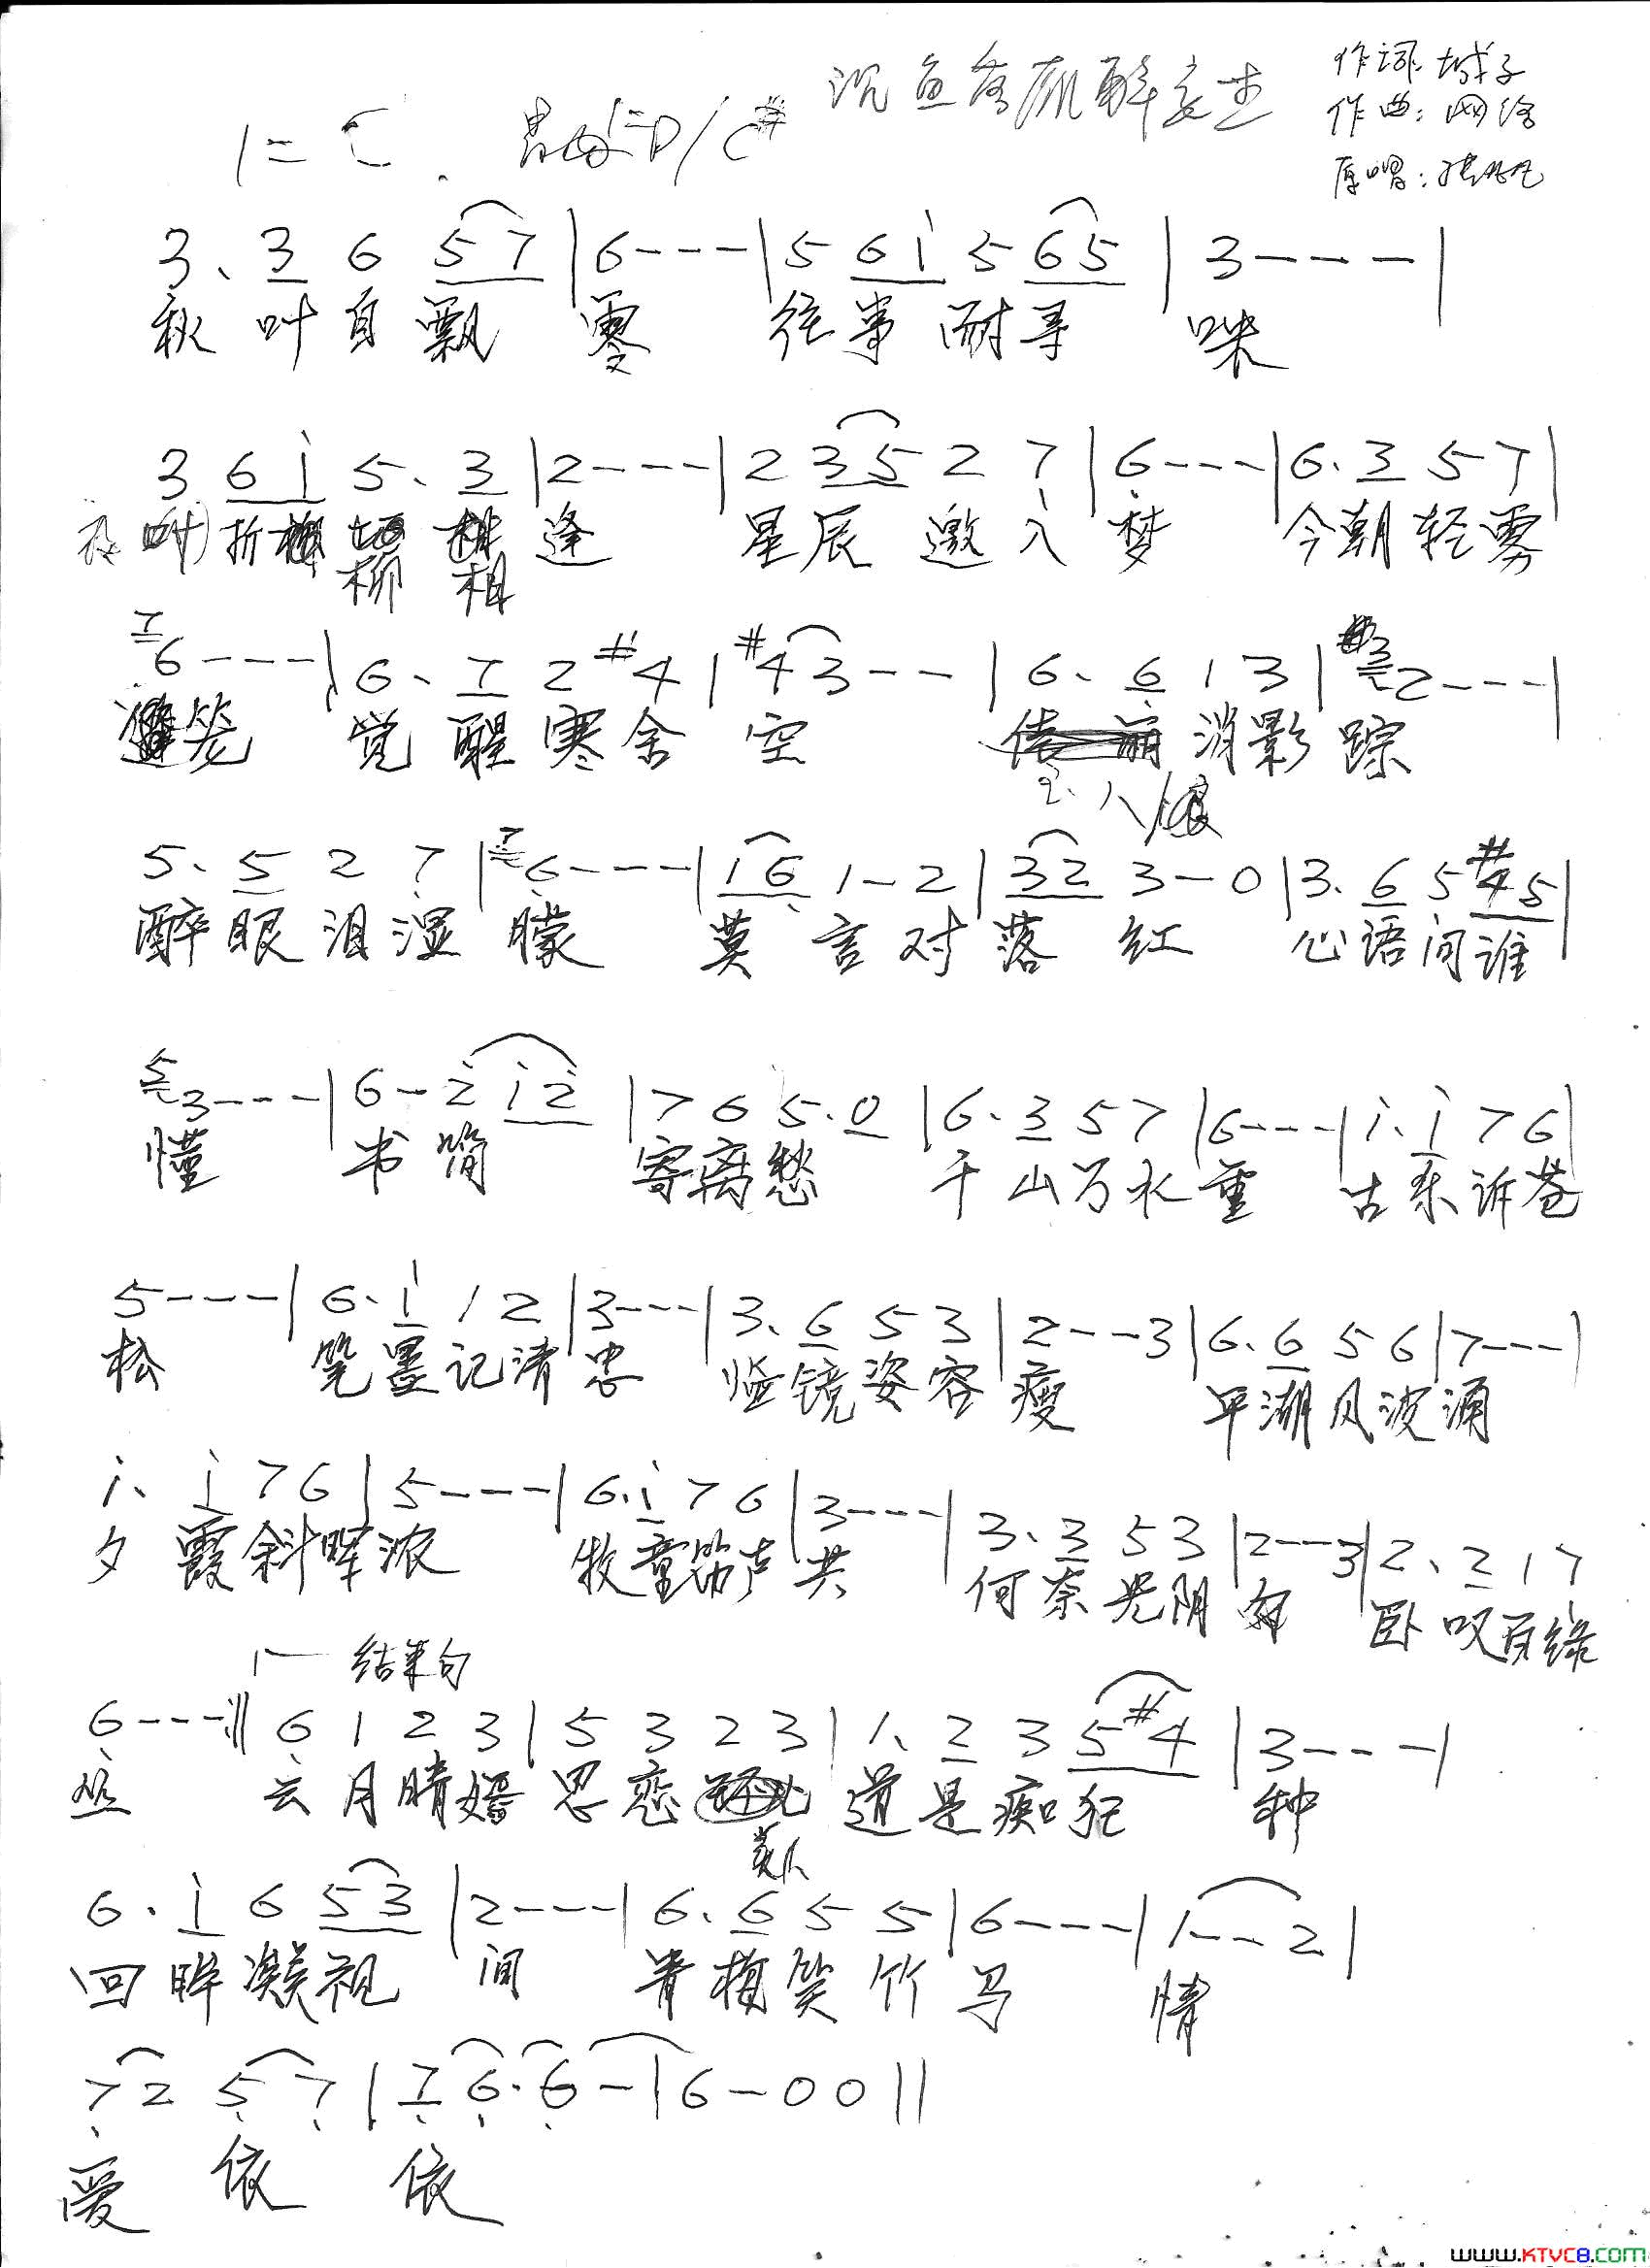 沉鱼落雁醉
作词:城子
作曲:网络
原唱:
1=C
1=D/C#
3. 3 6 5 7 | 6 - - - | 5 6 i 5 6 5 | 3 - - - |
秋叶自飘零 往事耐寻味
3 6 i 5. 3 | 2 - - - | 2 3 5 2 7 | 6 - - - | 6. 3 5 7 |
折 柳相逢 星辰邀入梦 今朝轻雾
7 6 - - - | 6. 7 2 #4 | #4 3 - - | 6. 6 1 3 | 3 2 - - - |
笼 觉醒寒余空 消影踪
5. 5 2 7 | 7 6 - - - | 1 6 1 - 2 | 3 2 3 - 0 | 3. 6 5 #4 5 |
醉眼泪湿朦 莫言对落红 心语问谁
5 3 - - - | 6 - 2 i 2 | 7 6 5. 0 | 6. 3 5 7 | 6 - - - | i. i 7 6 |
懂 书简寄离愁 千山万水重 古乐诉苍
5 - - - | 6. i 1 2 | 3 - - - | 3. 6 5 3 | 2 - - 3 | 6. 6 5 6 | 7 - - - |
松 笔墨记清忠 临镜姿容瘦 平湖风波涌
i. i 7 6 | 5 - - - | 6. i 7 6 | 3 - - - | 3. 3 5 3 | 2 - - 3 | 2. 2 1 7
夕霞斜晖浓 牧童笛声共 何奈光阴匆 卧叹百绦
结束句
6 - - - :|| 6 1 2 3 | 5 3 2 3 | 1. 2 3 5 #4 | 3 - - - |
丛 云月晴嫣思恋 道是痴狂种
美人
6. i 6 5 3 | 2 - - - | 6. 6 5 5 | 6 - - - | 1 - - 2 |
回眸凝视间 青梅笑竹马 情
7 2 5 7 | 7 6. 6 - | 6 - 0 0 ||
爱 依 依
www.KTVC8.com